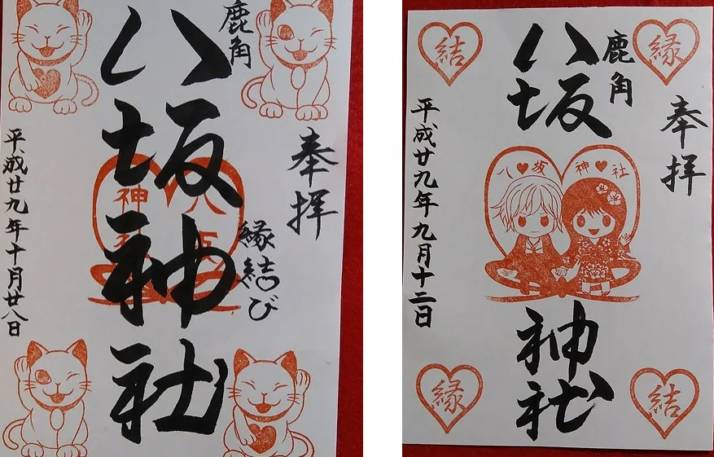 奉拝
鹿角
八坂神社
縁結び
八坂
神社
平成廿九年十月廿八日
奉拝
鹿角
八坂
神社
縁
結
八♥坂
神♥社
縁
結
平成廿九年九月十二日